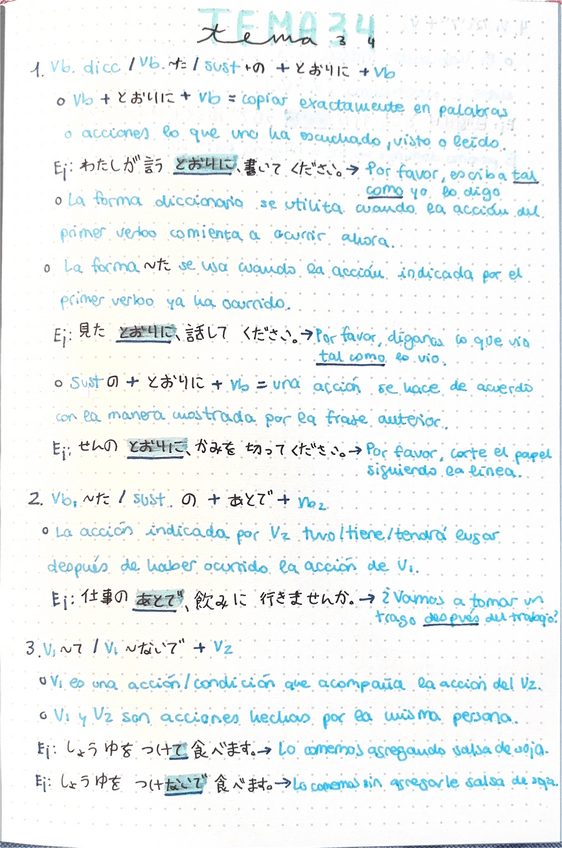 TEMA 34
tema 34
1. Vb. dicc / Vb. ~た / sust + の + とおりに + Vb
o Vb + とおりに + Vb = copiar exactamente en palabras
o acciones lo que uno ha escuchado, visto o leído.
Ej: わたしが言う とおりに、書いて ください。→ Por favor, escriba tal
como yo lo digo
o La forma diccionario se utilita cuando la acción del
primer verbo comienta a ocurrir ahora.
o La forma ~た se usa cuando la acción indicada por el
primer verbo ya ha ocurrido.
Ej: 見た とおりに、話して ください。→ Por favor, díganos lo que vio
tal como lo vio.
o Sust の + とおりに + Vb = una acción se hace de acuerdo
con la manera mostrada por la frase anterior.
Ej: せんの とおりに、かみを 切ってください。→ Por favor, corte el papel
siguiendo la línea.
2. Vb₁ ~た / sust. の + あとで + Vb₂
o La acción indicada por V2 tuvo/tiene/tendrá lugar
después de haber ocurrido la acción de V1.
Ej: 仕事の あとで、飲みに 行きませんか。→ ¿Vamos a tomar un
trago después del trabajo?
3. V₁ ~て / V₁ ~ないで + V2
o V1 es una acción/condición que acompaña la acción del V2.
o V1 y V2 son acciones hechas por la misma persona.
Ej: しょうゆを つけて 食べます。→ Lo comemos agregando salsa de soja.
Ej: しょうゆを つけないで 食べます。→ Lo comemos sin agregarle salsa de soja.